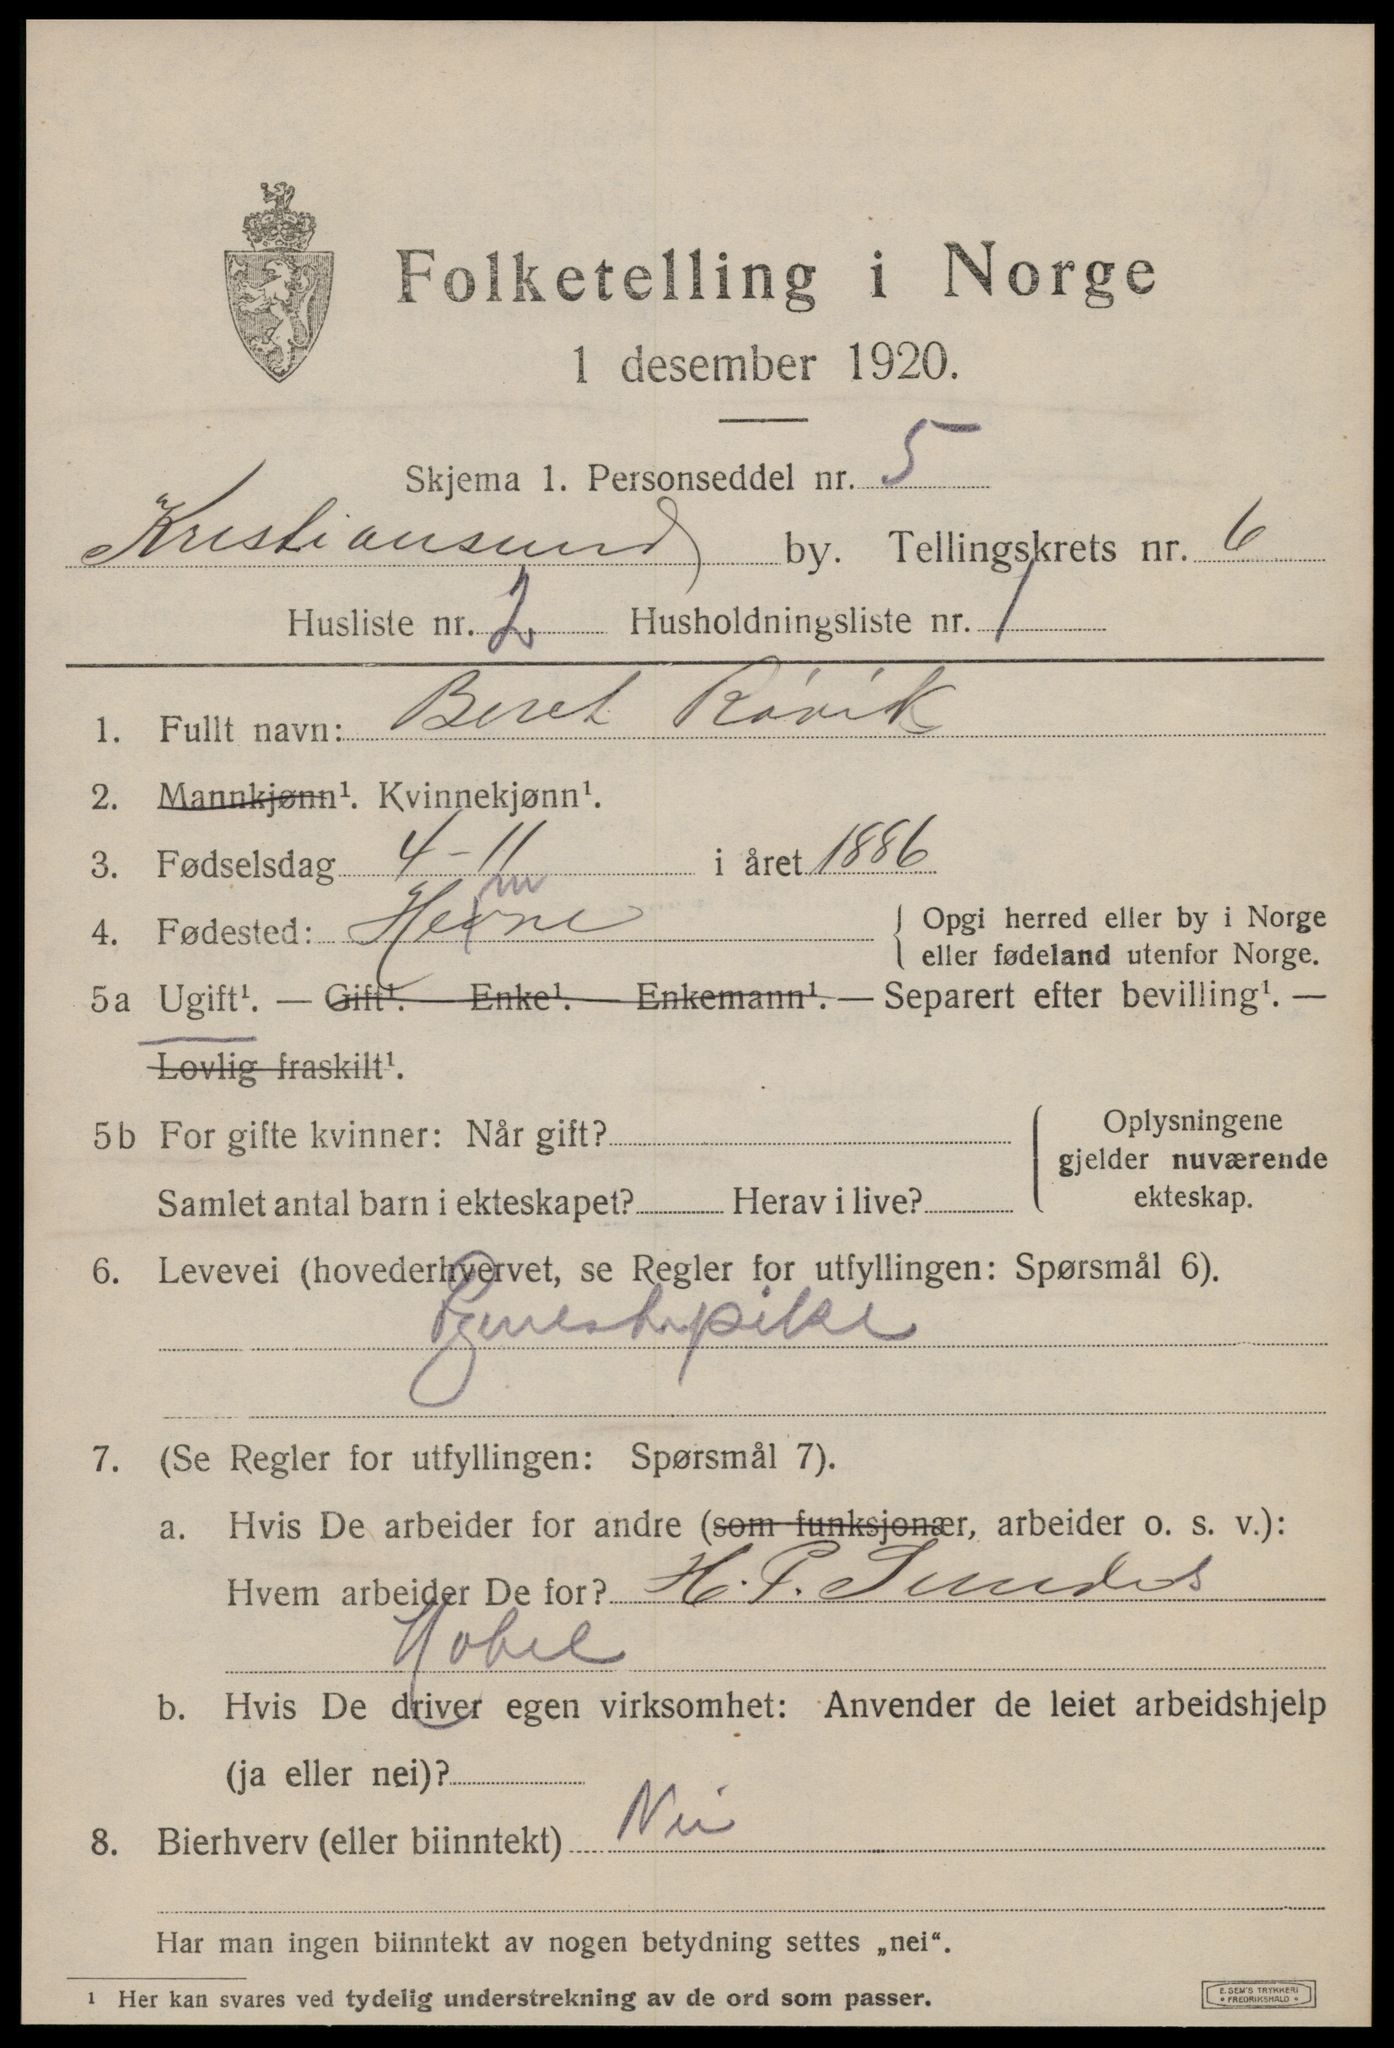 Folketelling i Norge
1 desember 1920.
Skjema 1. Personseddel nr. 5
Kristiansund by. Tellingskrets nr. 6
Husliste nr. 2 Husholdningsliste nr. 1
1. Fullt navn: Beret Røvik
2. Mannkjønn¹. Kvinnekjønn¹.
3. Fødselsdag 4-11 i året 1886
4. Fødested: { Opgi herred eller by i Norge
eller fødeland utenfor Norge.
5a Ugift¹. — Gift¹. — Enke¹. — Enkemann¹. — Separert efter bevilling¹. —
Lovlig fraskilt¹.
5b For gifte kvinner: Når gift? { Oplysningene
gjelder nuværende
Samlet antal barn i ekteskapet? Herav i live? ekteskap.
6. Levevei (hovederhvervet, se Regler for utfyllingen: Spørsmål 6).
7. (Se Regler for utfyllingen: Spørsmål 7).
a. Hvis De arbeider for andre (som funksjonær, arbeider o. s. v.):
Hvem arbeider De for? H. P. Sundes
b. Hvis De driver egen virksomhet: Anvender de leiet arbeidshjelp
(ja eller nei)?
8. Bierhverv (eller biinntekt) Nei
Har man ingen biinntekt av nogen betydning settes „nei“.
¹ Her kan svares ved tydelig understrekning av de ord som passer.
E. SEM'S TRYKKERI
• FREDRIKSHALD •